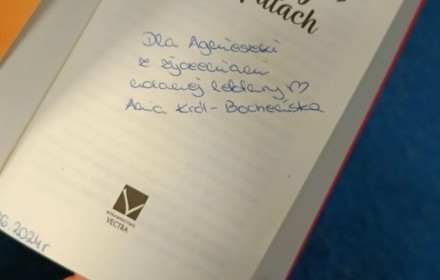 Dla Agnieszki
z życzeniami
udanej lektury
Ania Król-Bochenińska
WYDAWNICTWO
VECTRA
06.2024r